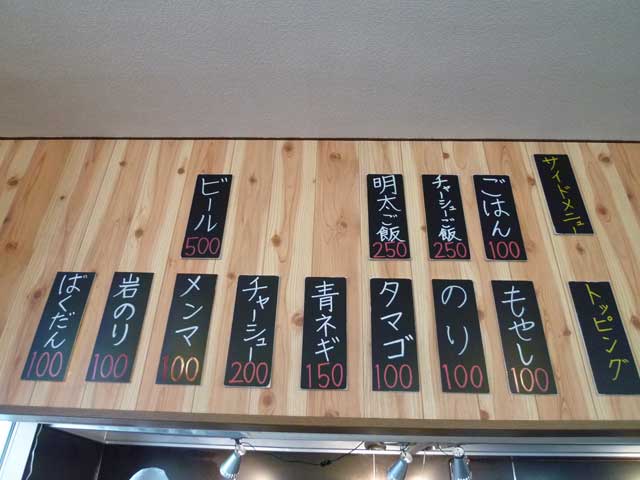 サイドメニュー
ごはん
100
チャーシューご飯
250
明太ご飯
250
ビール
500
トッピング
もやし
100
のり
100
タマゴ
100
青ネギ
150
チャーシュー
200
メンマ
100
岩のり
100
ばくだん
100